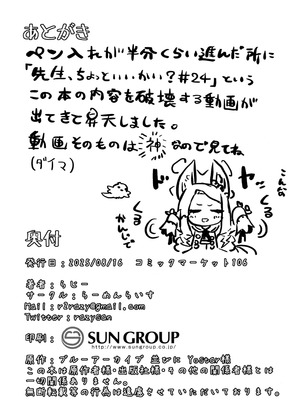 あとがき
ペン入れが半分くらい進んだ所に
「先生、ちょっといいかい？#24」という
この本の内容を破壊する動画が
出てきて昇天しました。
動画そのものは神なので見てね
(ダイマ)
ドヤ
くる
くる
こんな
かんじで
奥付
発行日：2025/08/16 コミックマーケット106
著者：らじー
サークル：らーめんらいす
Mail：r2razy@gmail.com
Twitter：razysan
印刷：SUN GROUP
http://www.sungroup.co.jp/
原作：ブルーアーカイブ 並びに Yostar様
この本は原作者様・出版社様・その他の関係者様とは
一切関係ありません。
無断転載等の行為は遠慮させていただいております。